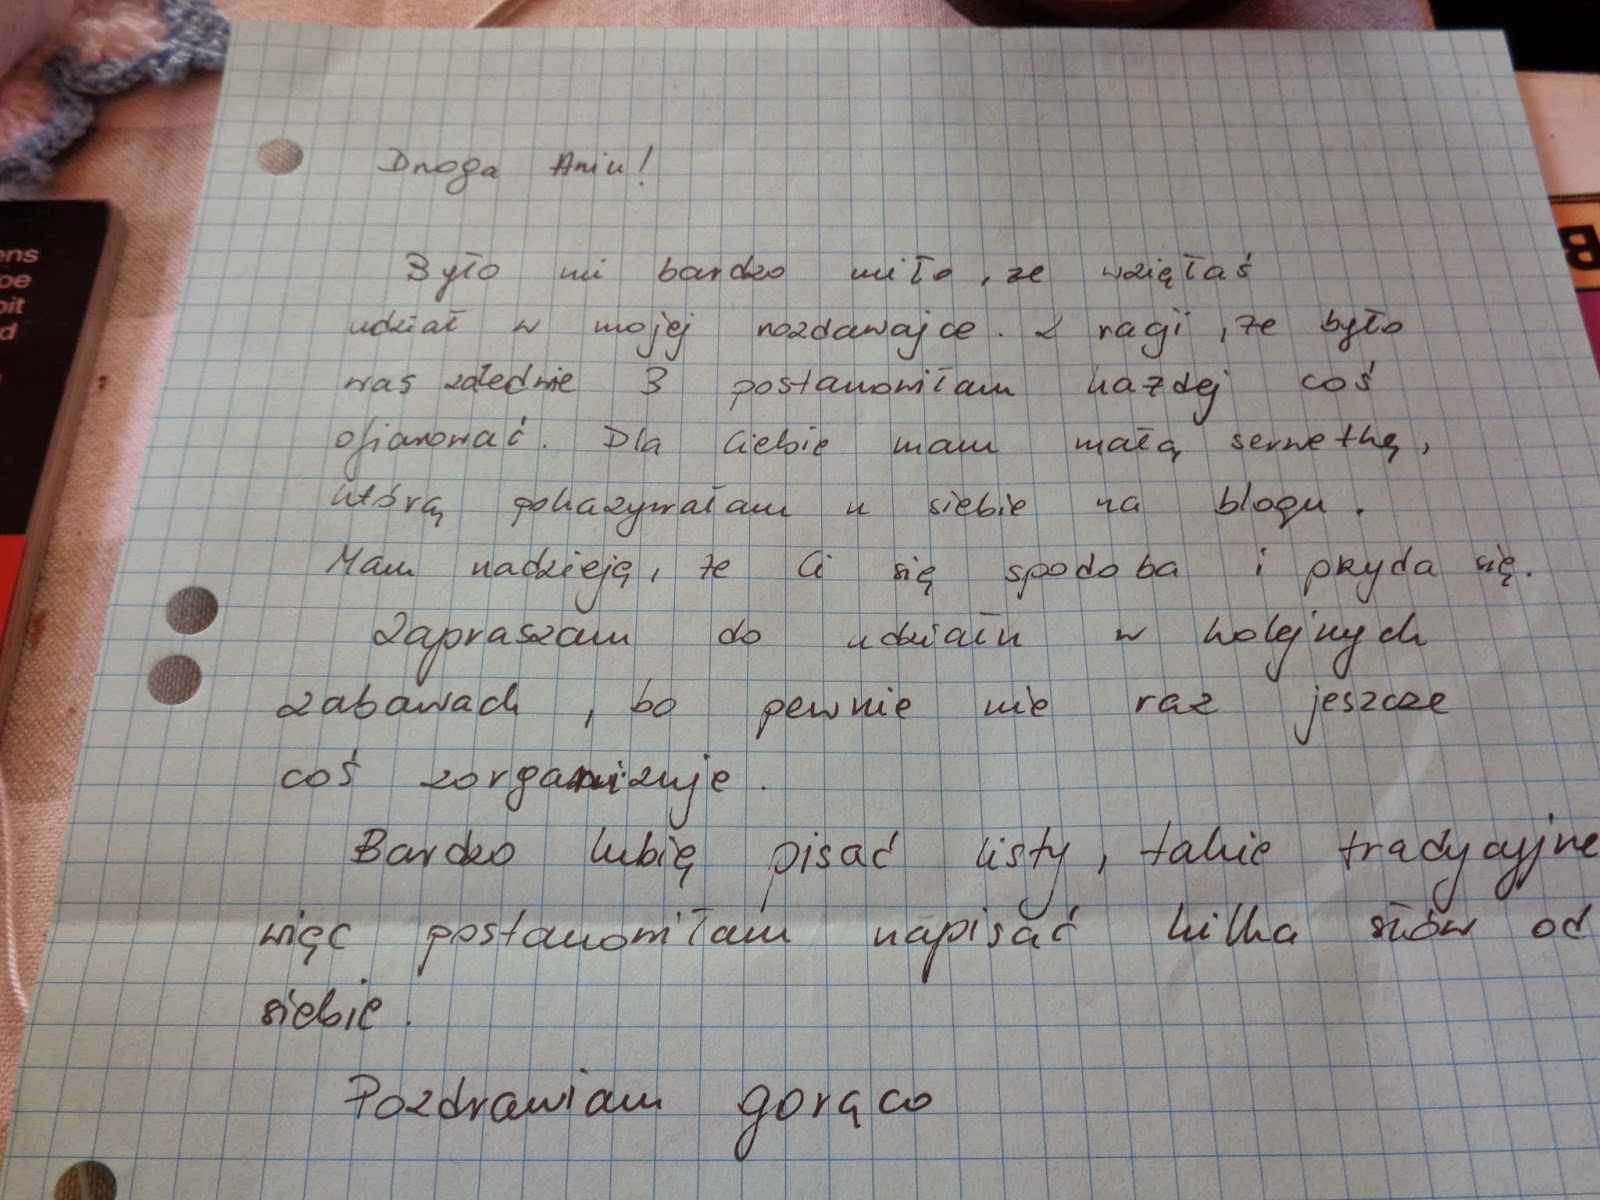 Droga Aniu!
Było mi bardzo miło, ze wzięłaś
udział w mojej rozdawajce. Z ragi, że było
was zaledwie 3 postanowiłam każdej coś
ofiarować. Dla Ciebie mam małą serwetkę,
którą pokazywałam u siebie na blogu.
Mam nadzieję, że Ci się spodoba i przyda się.
Zapraszam do udziału w kolejnych
zabawach, bo pewnie nie raz jeszcze
coś zorganizuje.
Bardzo lubię pisać listy, takie tradycyjne
więc postanowiłam napisać kilka słów od
siebie.
Pozdrawiam gorąco
ens
oe
bit
d
B